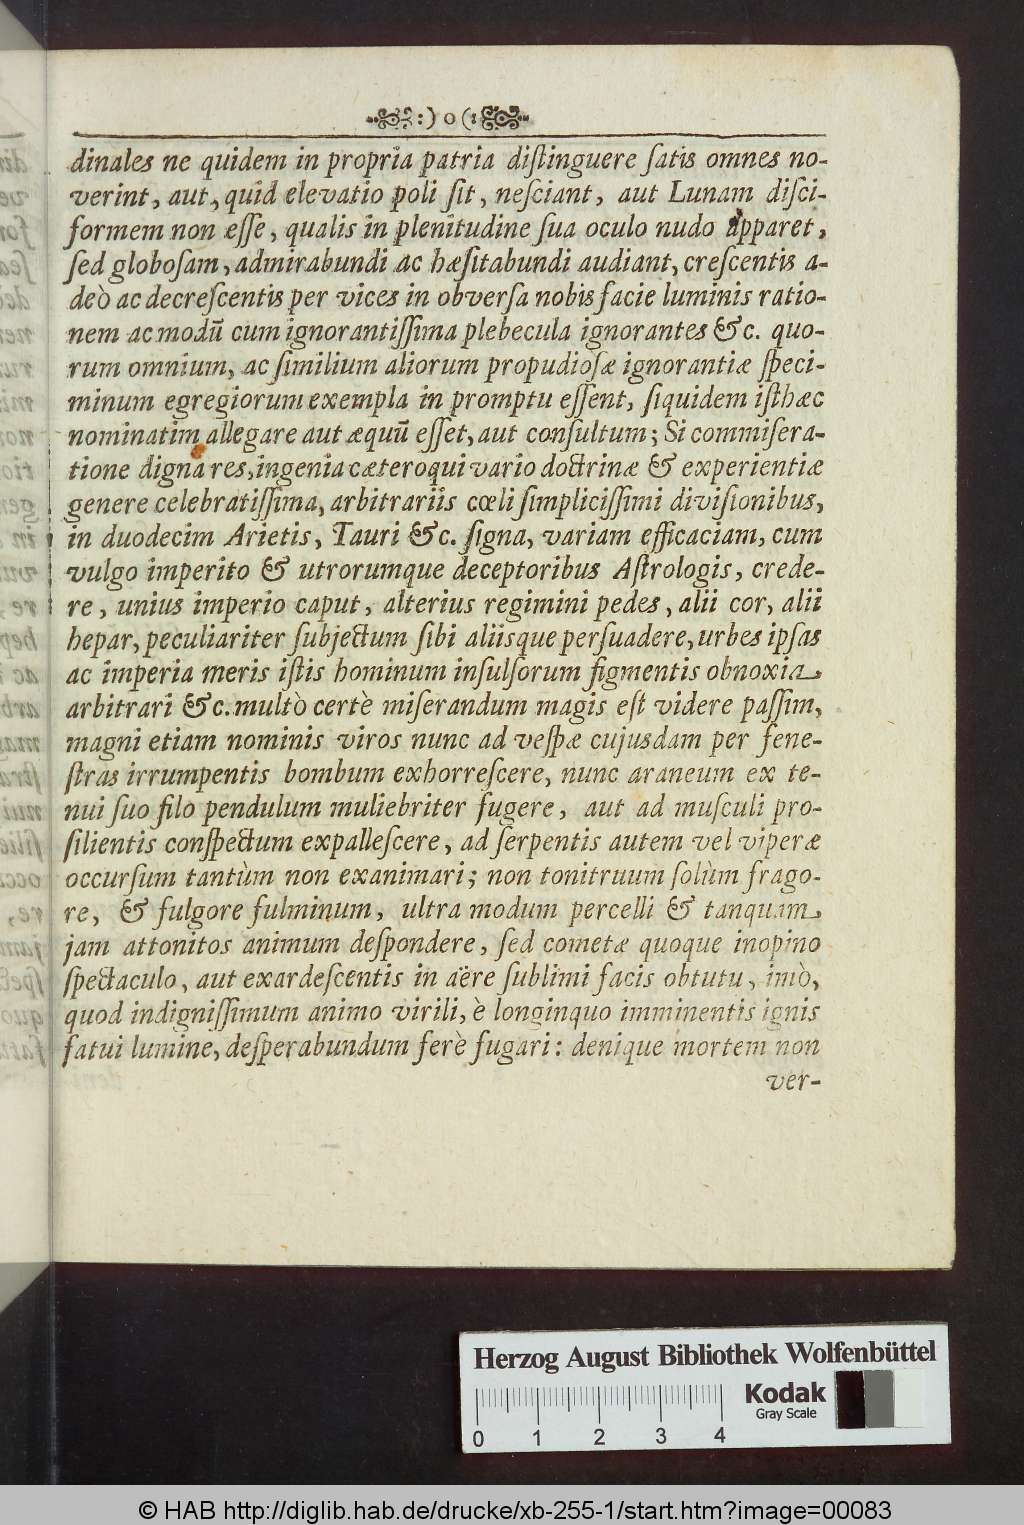 :) o (:
dinales ne quidem in propria patria diſtinguere ſatis omnes no-
verint, aut, quid elevatio poli ſit, neſciant, aut Lunam diſci-
formem non eſſe, qualis in plenitudine ſua oculo nudo apparet,
ſed globoſam, admirabundi ac hæſitabundi audiant, creſcentis a-
deò ac decreſcentis per vices in obverſa nobis facie luminis ratio-
nem ac modũ cum ignorantiſſima plebecula ignorantes &c. quo-
rum omnium, ac ſimilium aliorum propudioſæ ignorantiæ ſpeci-
minum egregiorum exempla in promptu eſſent, ſiquidem iſthæc
nominatim allegare aut æquũ eſſet, aut conſultum; Si commiſera-
tione digna res, ingenia cæteroqui vario doctrinæ & experientiæ
genere celebratiſſima, arbitrariis cœli ſimpliciſſimi diviſionibus,
in duodecim Arietis, Tauri &c. ſigna, variam efficaciam, cum
vulgo imperito & utrorumque deceptoribus Aſtrologis, crede-
re, unius imperio caput, alterius regimini pedes, alii cor, alii
hepar, peculiariter ſubjectum ſibi aliisque perſuadere, urbes ipſas
ac imperia meris iſtis hominum inſulſorum figmentis obnoxia
arbitrari &c. multò certè miſerandum magis eſt videre paſſim,
magni etiam nominis viros nunc ad veſpæ cujusdam per fene-
ſtras irrumpentis bombum exhorreſcere, nunc araneum ex te-
nui ſuo filo pendulum muliebriter fugere, aut ad muſculi pro-
ſilientis conſpectum expalleſcere, ad ſerpentis autem vel viperæ
occurſum tantùm non exanimari; non tonitruum ſolùm frago-
re, & fulgore fulminum, ultra modum percelli & tanquam
jam attonitos animum deſpondere, ſed cometæ quoque inopino
ſpectaculo, aut exardeſcentis in aëre ſublimi facis obtutu, imò,
quod indigniſſimum animo virili, è longinquo imminentis ignis
fatui lumine, deſperabundum ferè fugari: denique mortem non
ver-
Herzog August Bibliothek Wolfenbüttel
Kodak
Gray Scale
0 1 2 3 4
© HAB http://diglib.hab.de/drucke/xb-255-1/start.htm?image=00083